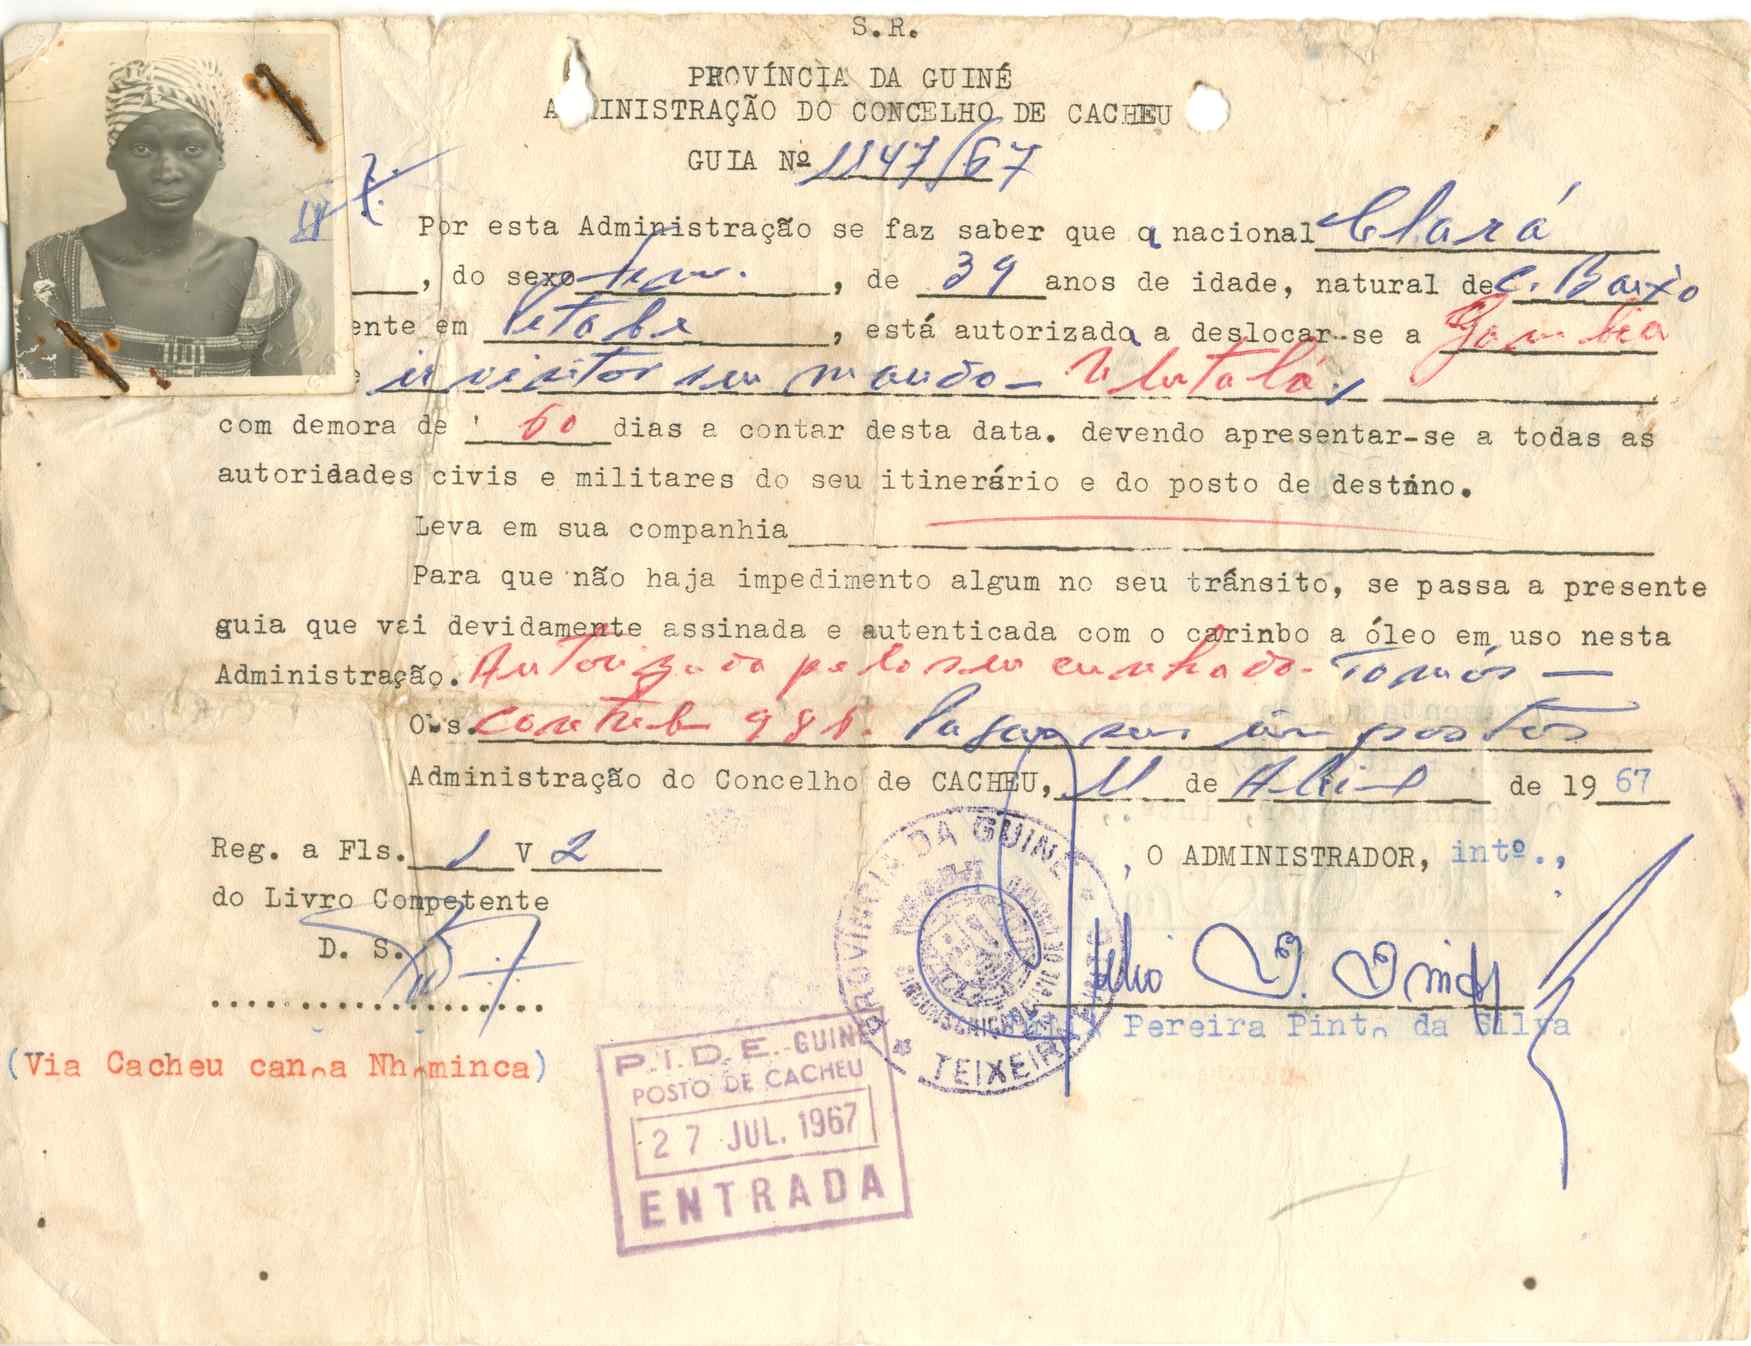 S.R.
PROVÍNCIA DA GUINÉ
ADMINISTRAÇÃO DO CONCELHO DE CACHEU
GUIA Nº 1147/67
Por esta Administração se faz saber que a nacional Clará
, do sexo fem. , de 39 anos de idade, natural de C. Baixo
ente em Petabe , está autorizada a deslocar-se a Gambia
e ir visitar seu marido -
com demora de 60 dias a contar desta data. devendo apresentar-se a todas as
autoridades civis e militares do seu itinerário e do posto de destino.
Leva em sua companhia
Para que não haja impedimento algum no seu trânsito, se passa a presente
guia que vai devidamente assinada e autenticada com o carinbo a óleo em uso nesta
Administração. Autorizada pelo seu cunhado - Tomás -
Obs. Pagou seus impostos
Administração do Concelho de CACHEU, 11 de Abril de 1967
Reg. a Fls. 1 V 2
do Livro Competente
D. S.
O ADMINISTRADOR, intº.,
Pereira Pinto da Silva
(Via Cacheu canoa Nhominca)
PROVINCIA DA GUINÉ
TEIXEIRA PINTO
P.I.D.E. - GUINÉ
POSTO DE CACHEU
27 JUL. 1967
ENTRADA